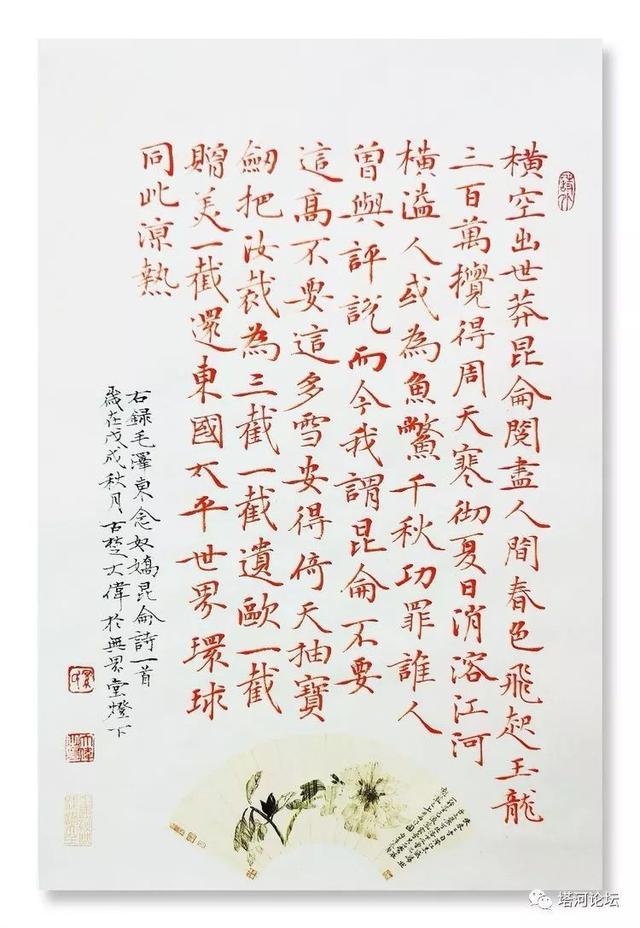 橫空出世莽昆侖閱盡人間春色飛起玉龍
三百萬攪得周天寒徹夏日消溶江河
橫溢人或為魚鱉千秋功罪誰人
曾與評說而今我謂昆侖不要
這高不要這多雪安得倚天抽寶
劍把汝裁為三截一截遺歐一截
贈美一截還東國太平世界環球
同此涼熱
右錄毛澤東念奴嬌昆侖詩一首
歲在戊戌秋月古楚大偉於無界堂燈下
塔河论坛